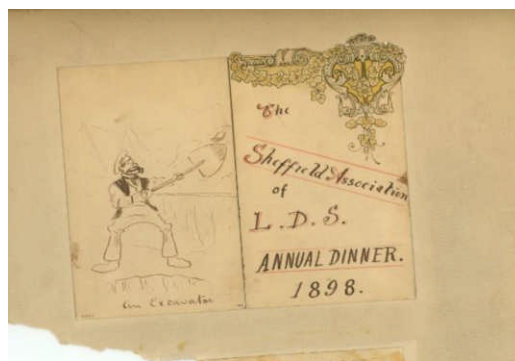 an Excavator
The
Sheffield Association
of
L.D.S.
ANNUAL DINNER.
1898.